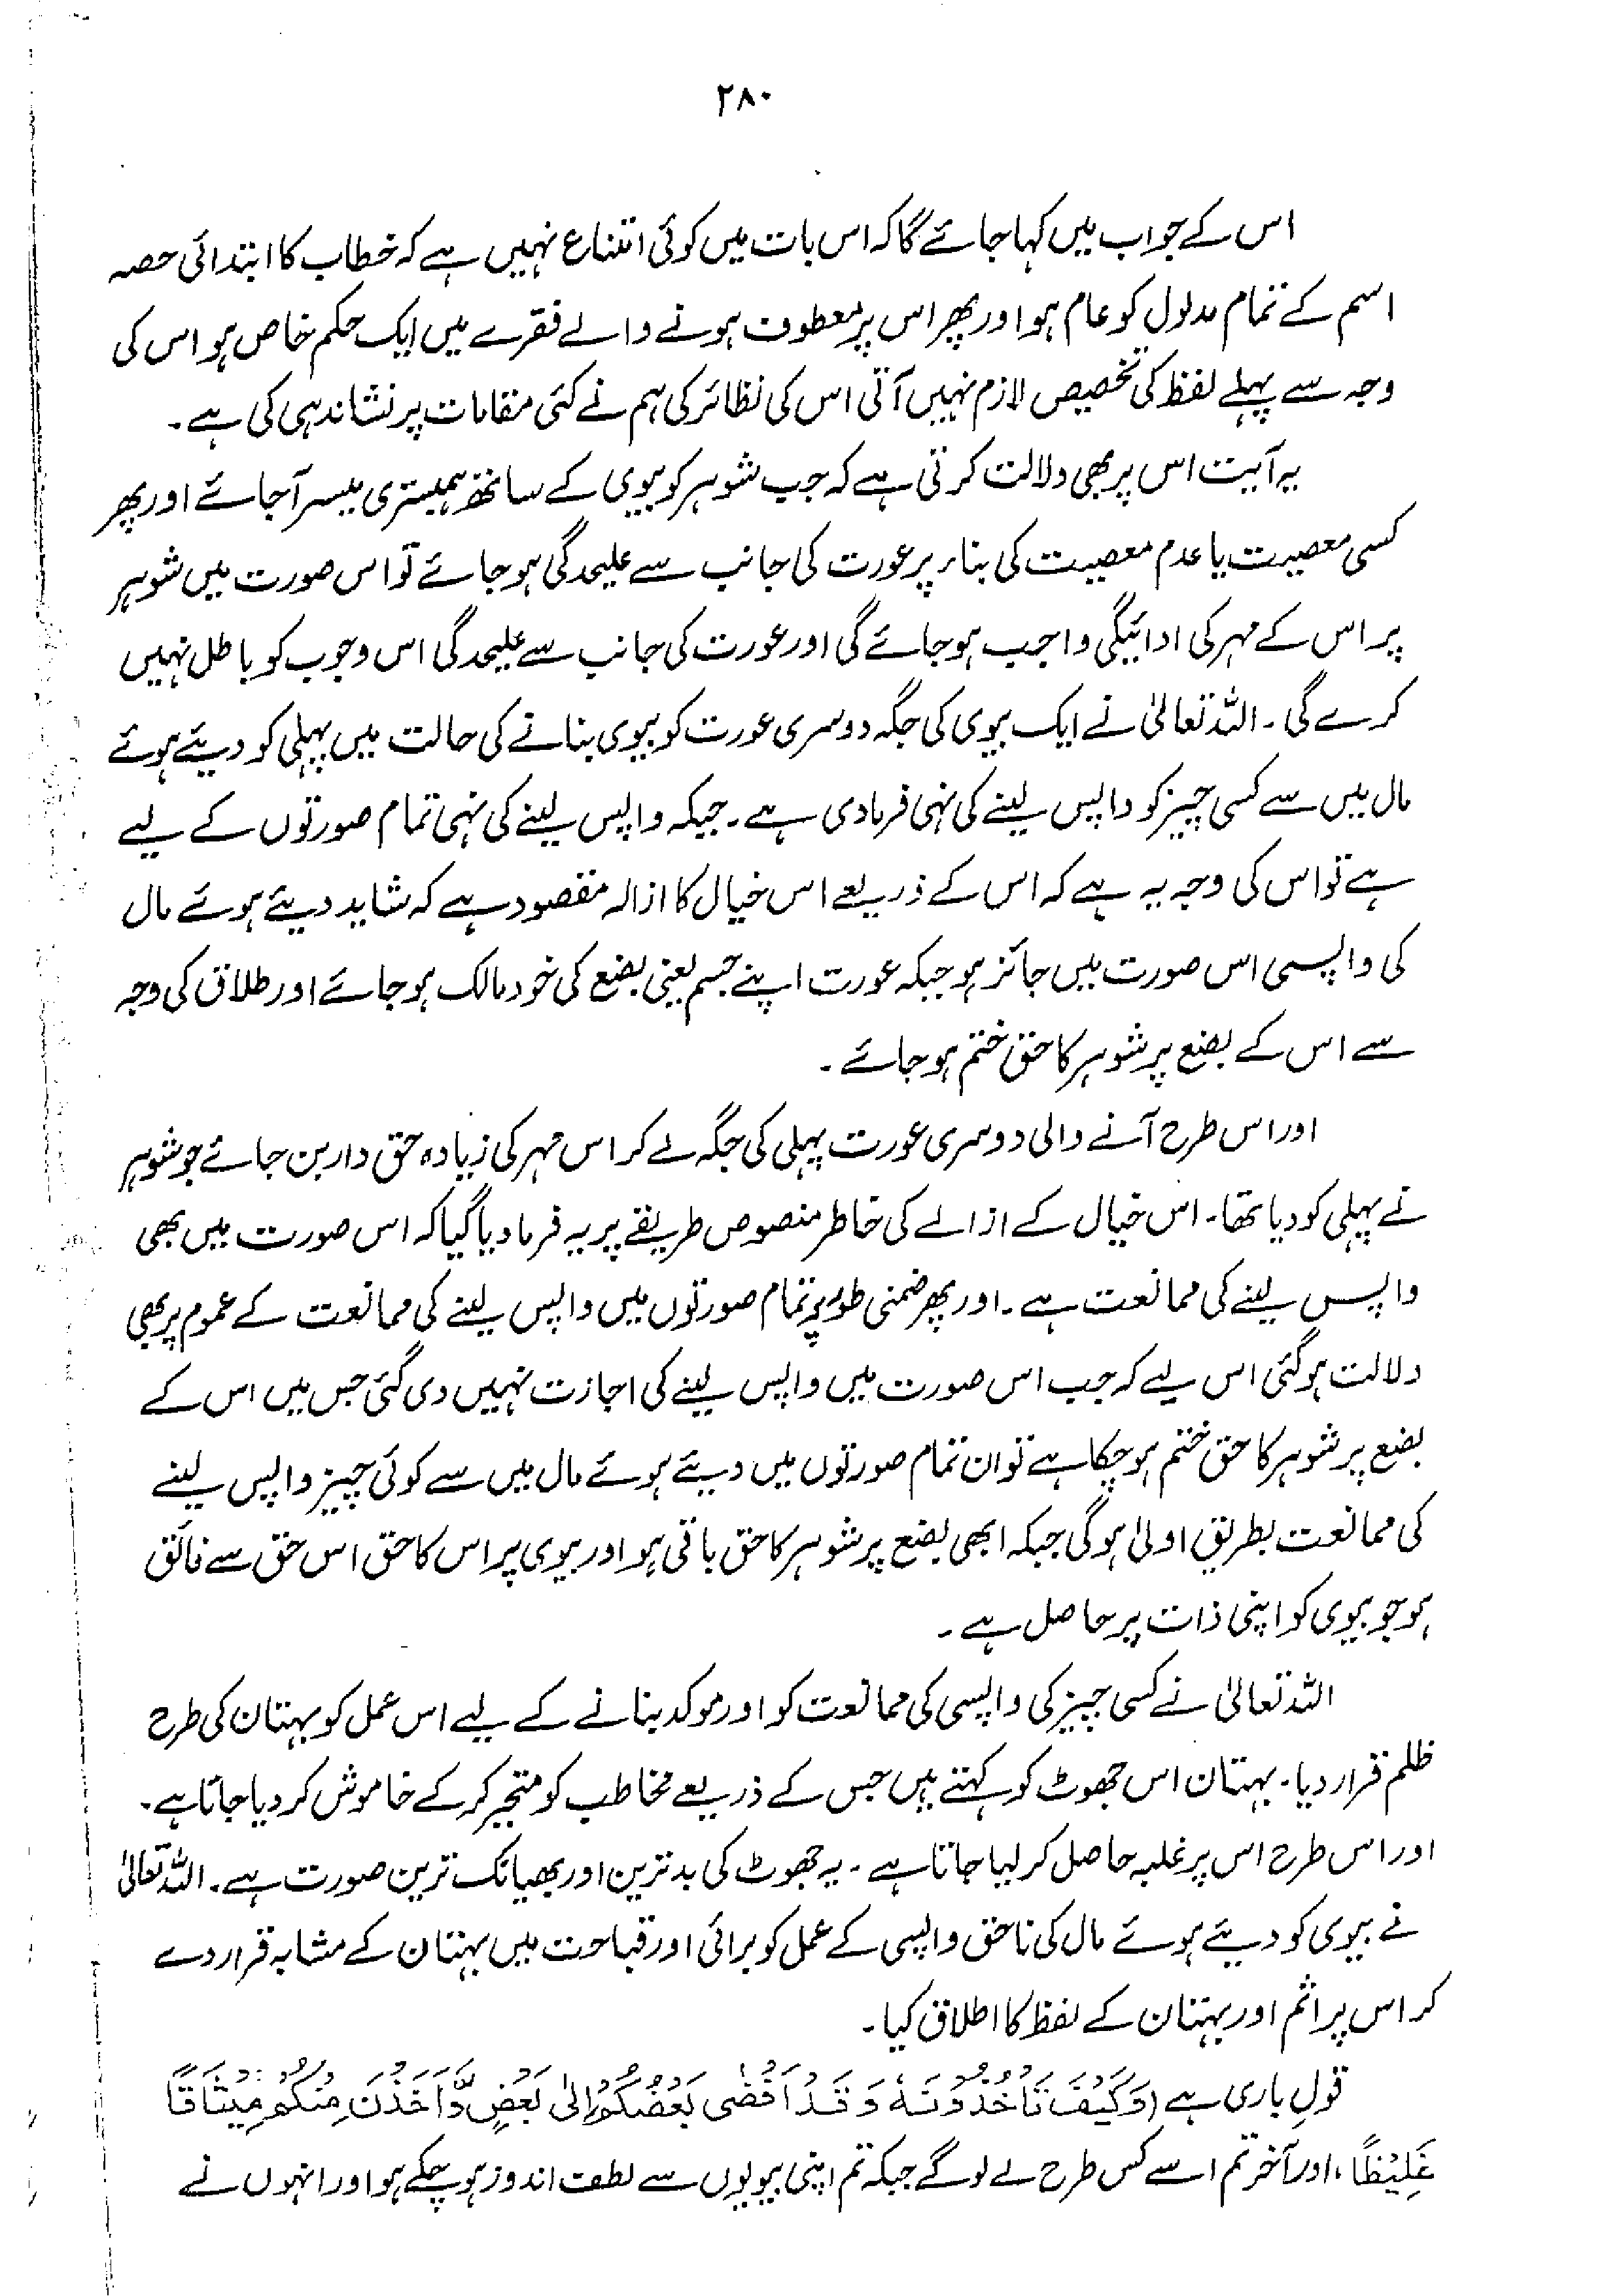 ۲۸۰
اس کے جواب میں کہا جائے گا کہ اس بات میں کوئی امتناع نہیں ہے کہ خطاب کا ابتدائی حصہ
اسم کے تمام مدلول کو عام ہو اور پھر اس پر معطوف ہونے والے فقرے میں ایک حکم خاص ہو اس کی
وجہ سے پہلے لفظ کی تخصیص لازم نہیں آتی اس کی نظائر کی ہم نے کئی مقامات پر نشاندہی کی ہے۔
یہ آیت اس پر بھی دلالت کرتی ہے کہ جب شوہر کو بیوی کے ساتھ ہمبستری میسر آجائے اور پھر
کسی معصیت یا عدم معصیت کی بناء پر عورت کی جانب سے علیحدگی ہو جائے تو اس صورت میں شوہر
پر اس کے مہر کی ادائیگی واجب ہو جائے گی اور عورت کی جانب سے علیحدگی اس وجوب کو باطل نہیں
کرے گی۔ اللہ تعالیٰ نے ایک بیوی کی جگہ دوسری عورت کو بیوی بنانے کی حالت میں پہلی کو دیئے ہوئے
مال میں سے کسی چیز کو واپس لینے کی نہی فرمادی ہے۔ جبکہ واپس لینے کی نہی تمام صورتوں کے لیے
ہے تو اس کی وجہ یہ ہے کہ اس کے ذریعے اس خیال کا ازالہ مقصود ہے کہ شاید دیئے ہوئے مال
کی واپسی اس صورت میں جائز ہو جبکہ عورت اپنے جسم یعنی بضع کی خود مالک ہو جائے اور طلاق کی وجہ
سے اس کے بضع پر شوہر کا حق ختم ہو جائے۔
اور اس طرح آنے والی دوسری عورت پہلی کی جگہ لے کر اس مہر کی زیادہ حق دار بن جائے جو شوہر
نے پہلی کو دیا تھا۔ اس خیال کے ازالے کی خاطر منصوص طریقے پر یہ فرما دیا گیا کہ اس صورت میں بھی
واپس لینے کی ممانعت ہے۔ اور پھر ضمنی طور پر تمام صورتوں میں واپس لینے کی ممانعت کے عموم پر بھی
دلالت ہو گئی اس لیے کہ جب اس صورت میں واپس لینے کی اجازت نہیں دی گئی جس میں اس کے
بضع پر شوہر کا حق ختم ہو چکا ہے تو ان تمام صورتوں میں دیئے ہوئے مال میں سے کوئی چیز واپس لینے
کی ممانعت بطریق اولیٰ ہو گی جبکہ ابھی بضع پر شوہر کا حق باقی ہو اور بیوی پر اس کا حق اس حق سے فائق
ہو جو بیوی کو اپنی ذات پر حاصل ہے۔
اللہ تعالیٰ نے کسی چیز کی واپسی کی ممانعت کو اور موکد بنانے کے لیے اس عمل کو بہتان کی طرح
ظلم قرار دیا۔ بہتان اس جھوٹ کو کہتے ہیں جس کے ذریعے مخاطب کو متحیر کر کے خاموش کر دیا جاتا ہے۔
اور اس طرح اس پر غلبہ حاصل کر لیا جاتا ہے۔ یہ جھوٹ کی بدترین اور بھیانک ترین صورت ہے۔ اللہ تعالیٰ
نے بیوی کو دیئے ہوئے مال کی ناحق واپسی کے عمل کو برائی اور قباحت میں بہتان کے مشابہ قرار دے
کر اس پر اثم اور بہتان کے لفظ کا اطلاق کیا۔
قول باری ہے (وَكَيْفَ تَأْخُذُوْنَهٗ وَقَدْ اَفْضٰى بَعْضُكُمْ اِلٰى بَعْضٍ وَّاَخَذْنَ مِنْكُمْ مِيْثَاقًا
غَلِيْظًا، اور آخر تم اسے کس طرح لے لو گے جبکہ تم اپنی بیویوں سے لطف اندوز ہو چکے ہو اور انہوں نے